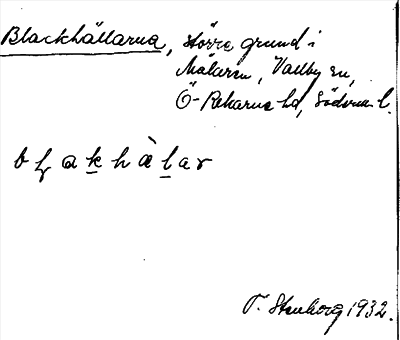 Blackhällarna, större grund i
Mälaren, Vallby sn,
Ö-Rekarne hd, Söderm. l.
b l a k h ä l a r
T. Stenborg 1932.